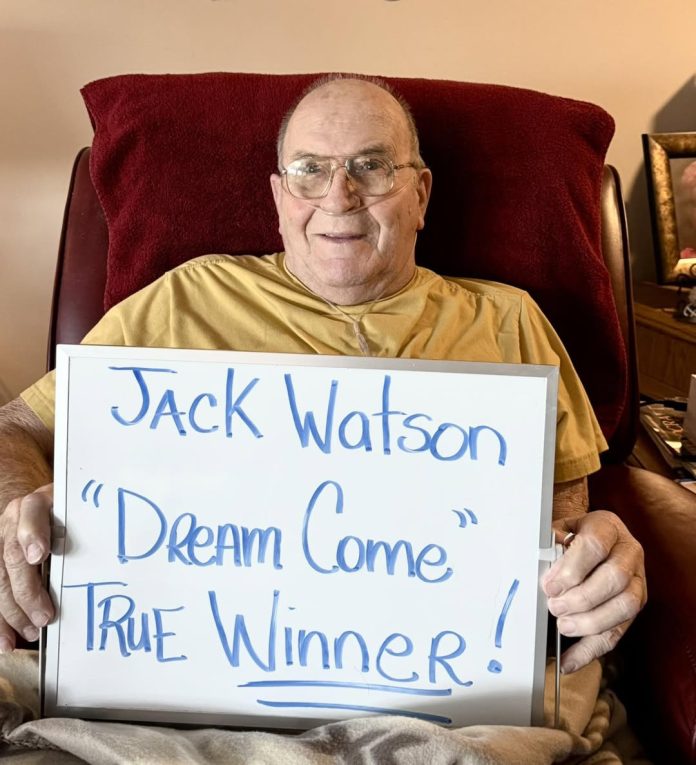 Jack Watson
"Dream Come"
True Winner!